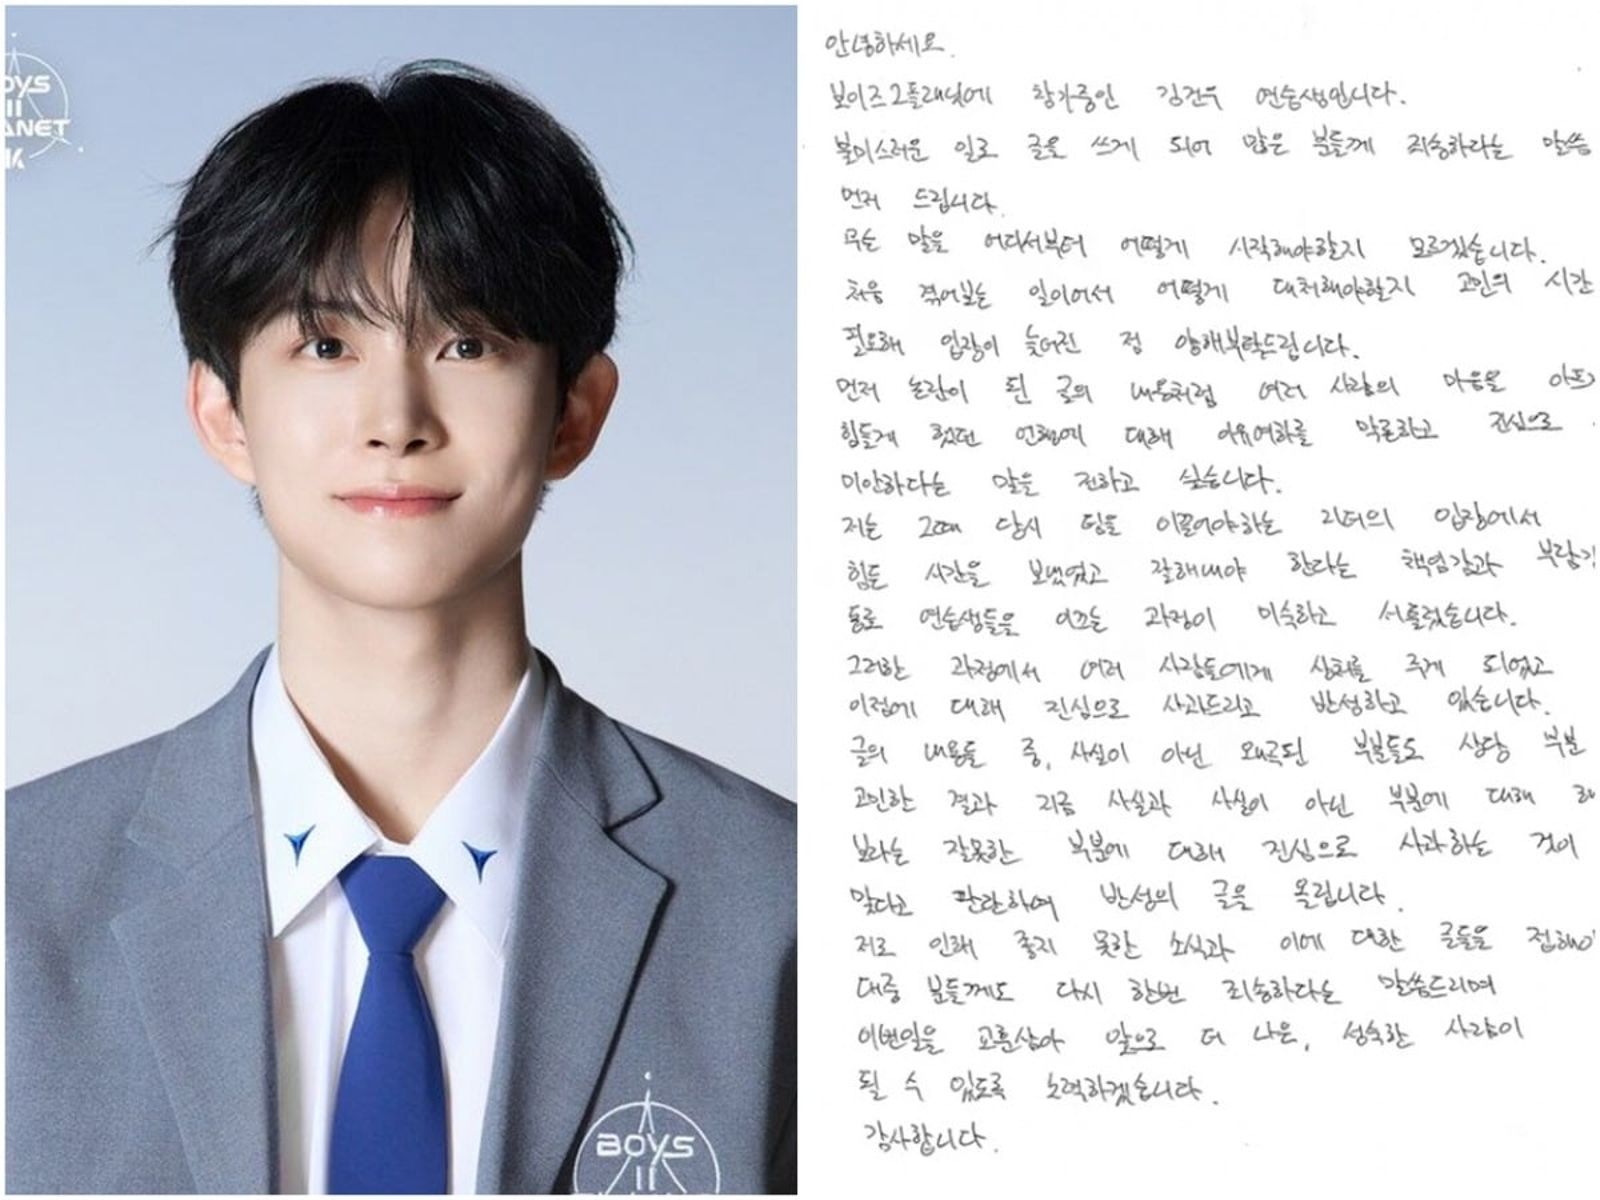 BOYS
II
PLANET
K
BOYS
II
안녕하세요.
보이즈2플래닛에 참가중인 김건우 연습생입니다.
불미스러운 일로 글을 쓰게 되어 많은 분들께 죄송하다는 말씀
먼저 드립니다.
무슨 말을 어디서부터 어떻게 시작해야할지 모르겠습니다.
처음 겪어보는 일이어서 어떻게 대처해야할지 고민의 시간
필요해 입장이 늦어진 점 양해부탁드립니다.
먼저 논란이 된 글의 내용처럼 여러 사람의 마음을 아프
힘들게 했던 언행에 대해 이유여하를 막론하고 진심으로
미안하다는 말을 전하고 싶습니다.
저는 그때 당시 팀을 이끌어야하는 리더의 입장에서
힘든 시간을 보냈었고 잘해내야 한다는 책임감과 부담감
등으로 연습생들을 이끄는 과정이 미숙하고 서툴렀습니다.
그러한 과정에서 여러 사람들에게 상처를 주게 되었고
이점에 대해 진심으로 사과드리고 반성하고 있습니다.
글의 내용들 중, 사실이 아닌 왜곡된 부분들도 상당 부분
고민한 결과 지금 사실과 사실이 아닌 부분에 대해
보다는 잘못한 부분에 대해 진심으로 사과하는 것이
맞다고 판단하여 반성의 글을 올립니다.
저로 인해 좋지 못한 소식과 이에 대한 글들을 접해
대중 분들께도 다시 한번 죄송하다는 말씀드리며
이번일을 교훈삼아 앞으로 더 나은, 성숙한 사람이
될 수 있도록 노력하겠습니다.
감사합니다.